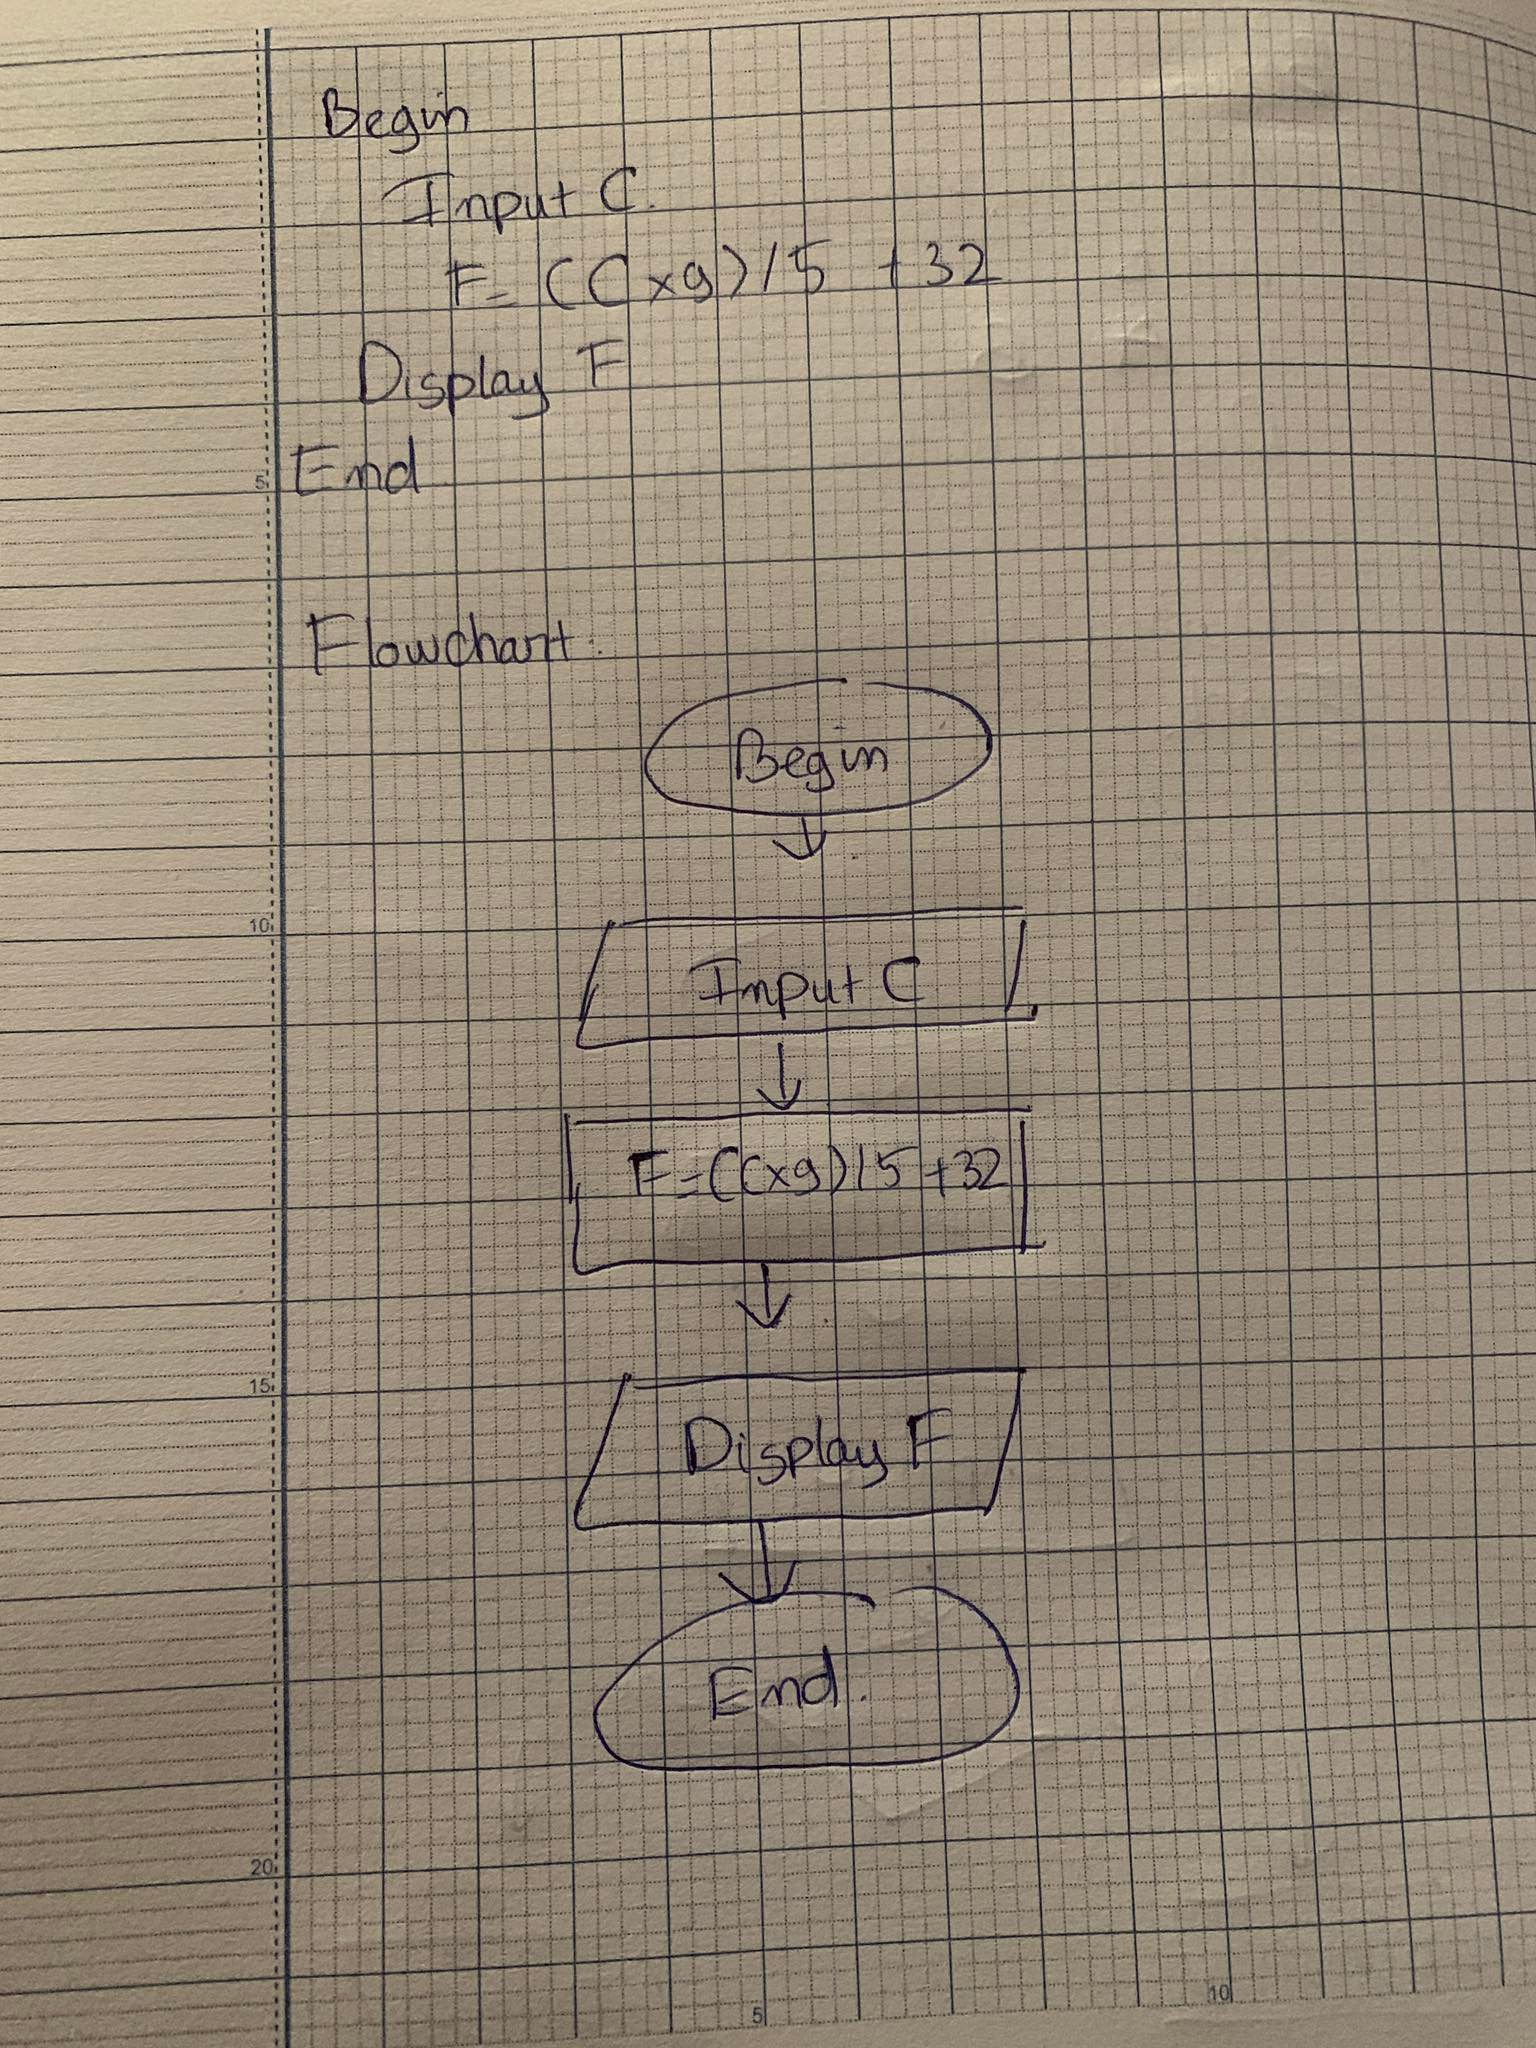 Begin
Input C.
F= (C x9)/5 +32
Display F
End
Flowchart:
Begin
Input C
F=(Cx9)/5+32
Display F
End.
5
10
15
20
5
10